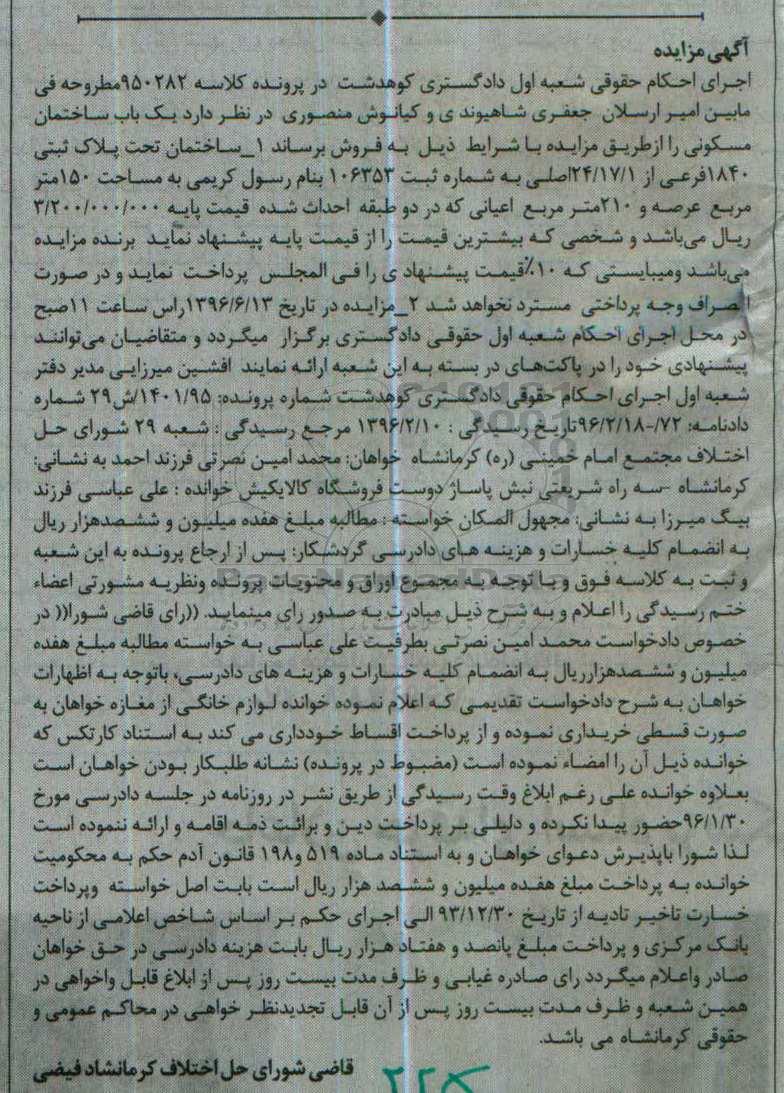 آگهی مزایده
اجرای احکام حقوقی شعبه اول دادگستری کوهدشت در پرونده کلاسه ۹۵۰۲۸۲مطروحه فی
مابین امیر ارسلان جعفری شاهیوند ی و کیانوش منصوری در نظر دارد یک باب ساختمان
مسکونی را ازطریق مزایده با شرایط ذیل به فروش برساند ۱_ساختمان تحت پلاک ثبتی
۱۸۴۰فرعی از ۲۴/۱۷/۱اصلی به شماره ثبت ۱۰۶۳۵۳ بنام رسول کریمی به مساحت ۱۵۰متر
مربع عرصه و ۲۱۰متر مربع اعیانی که در دو طبقه احداث شده قیمت پایه ۳/۲۰۰/۰۰۰/۰۰۰
ریال می‌باشد و شخصی که بیشترین قیمت را از قیمت پایه پیشنهاد نماید برنده مزایده
می‌باشد ومیبایستی که ۱۰٪قیمت پیشنهاد ی را فی المجلس پرداخت نماید و در صورت
انصراف وجه پرداختی مسترد نخواهد شد ۲_مزایده در تاریخ ۱۳۹۶/۶/۱۳راس ساعت ۱۱صبح
در محل اجرای احکام شعبه اول حقوقی دادگستری برگزار میگردد و متقاضیان می‌توانند
پیشنهادی خود را در پاکت‌های در بسته به این شعبه ارائه نمایند افشین میرزایی مدیر دفتر
شعبه اول اجرای احکام حقوقی دادگستری کوهدشت شماره پرونده: ۱۴۰۱/۹۵/ش۲۹ شماره
دادنامه: ۷۲/-۹۶/۲/۱۸تاریخ رسیدگی : ۱۳۹۶/۲/۱۰ مرجع رسیدگی : شعبه ۲۹ شورای حل
اختلاف مجتمع امام خمینی (ره) کرمانشاه خواهان: محمد امین نصرتی فرزند احمد به نشانی:
کرمانشاه -سه راه شریعتی نبش پاساژ دوست فروشگاه کالایکیش خوانده : علی عباسی فرزند
بیگ میرزا به نشانی: مجهول المکان خواسته : مطالبه مبلغ هفده میلیون و ششصدهزار ریال
به انضمام کلیه خسارات و هزینه های دادرسی گردشکار: پس از ارجاع پرونده به این شعبه
و ثبت به کلاسه فوق و با توجه به مجموع اوراق و محتویات پرونده ونظریه مشورتی اعضاء
ختم رسیدگی را اعلام و به شرح ذیل مبادرت به صدور رای مینماید. ((رای قاضی شورا(( در
خصوص دادخواست محمد امین نصرتی بطرفیت علی عباسی به خواسته مطالبه مبلغ هفده
میلیون و ششصدهزارریال به انضمام کلیه خسارات و هزینه های دادرسی، باتوجه به اظهارات
خواهان به شرح دادخواست تقدیمی که اعلام نموده خوانده لوازم خانگی از مغازه خواهان به
صورت قسطی خریداری نموده و از پرداخت اقساط خودداری می کند به استناد کارتکس که
خوانده ذیل آن را امضاء نموده است (مضبوط در پرونده) نشانه طلبکار بودن خواهان است
بعلاوه خوانده علی رغم ابلاغ وقت رسیدگی از طریق نشر در روزنامه در جلسه دادرسی مورخ
۹۶/۱/۳۰حضور پیدا نکرده و دلیلی بر پرداخت دین و برائت ذمه اقامه و ارائه ننموده است
لذا شورا باپذیرش دعوای خواهان و به استناد ماده ۵۱۹ و۱۹۸ قانون آدم حکم به محکومیت
خوانده به پرداخت مبلغ هفده میلیون و ششصد هزار ریال است بابت اصل خواسته وپرداخت
خسارت تاخیر تادیه از تاریخ ۹۳/۱۲/۳۰ الی اجرای حکم بر اساس شاخص اعلامی از ناحیه
بانک مرکزی و پرداخت مبلغ پانصد و هفتاد هزار ریال بابت هزینه دادرسی در حق خواهان
صادر واعلام میگردد رای صادره غیابی و ظرف مدت بیست روز پس از ابلاغ قابل واخواهی در
همین شعبه و ظرف مدت بیست روز پس از آن قابل تجدیدنظر خواهی در محاکم عمومی و
حقوقی کرمانشاه می باشد.
قاضی شورای حل اختلاف کرمانشاه فیضی